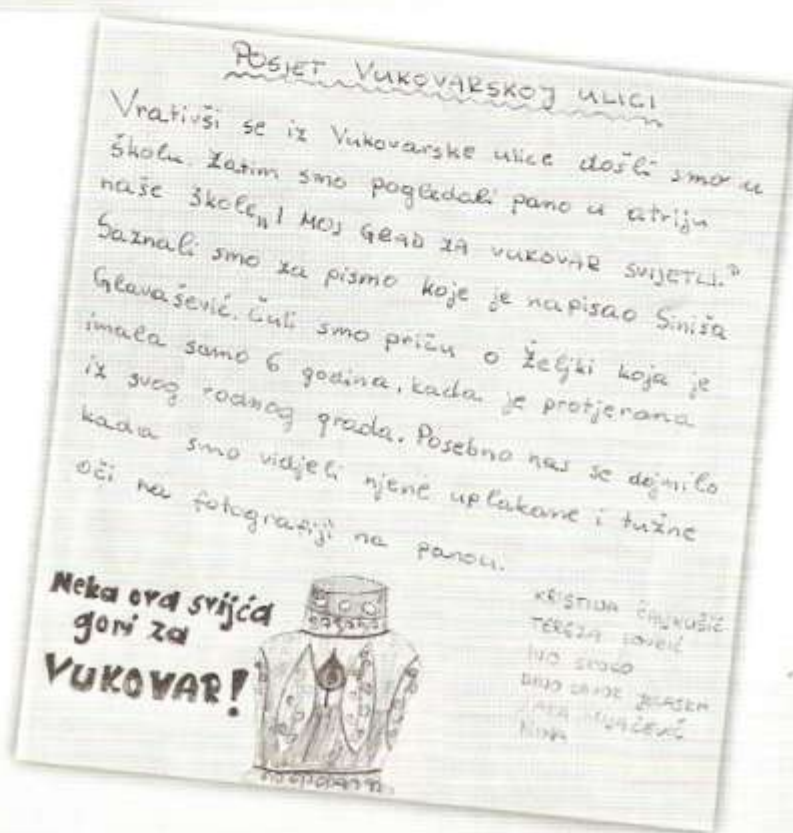 POSJET VUKOVARSKOJ ULICI
Vrativši se iz Vukovarske ulice došli smo u
školu. Zatim smo pogledali pano u atriju
naše škole „I MOJ GRAD ZA VUKOVAR SVIJETLI.”
Saznali smo za pismo koje je napisao Siniša
Glavašević. Čuli smo priču o Željki koja je
imala samo 6 godina, kada je protjerana
iz svog rodnog grada. Posebno nas se dojmilo
kada smo vidjeli njene uplakane i tužne
oči na fotografiji na panou.
Neka ova svijća
gori za
VUKOVAR!
KRISTINA
TEREZA
IVO
NINA